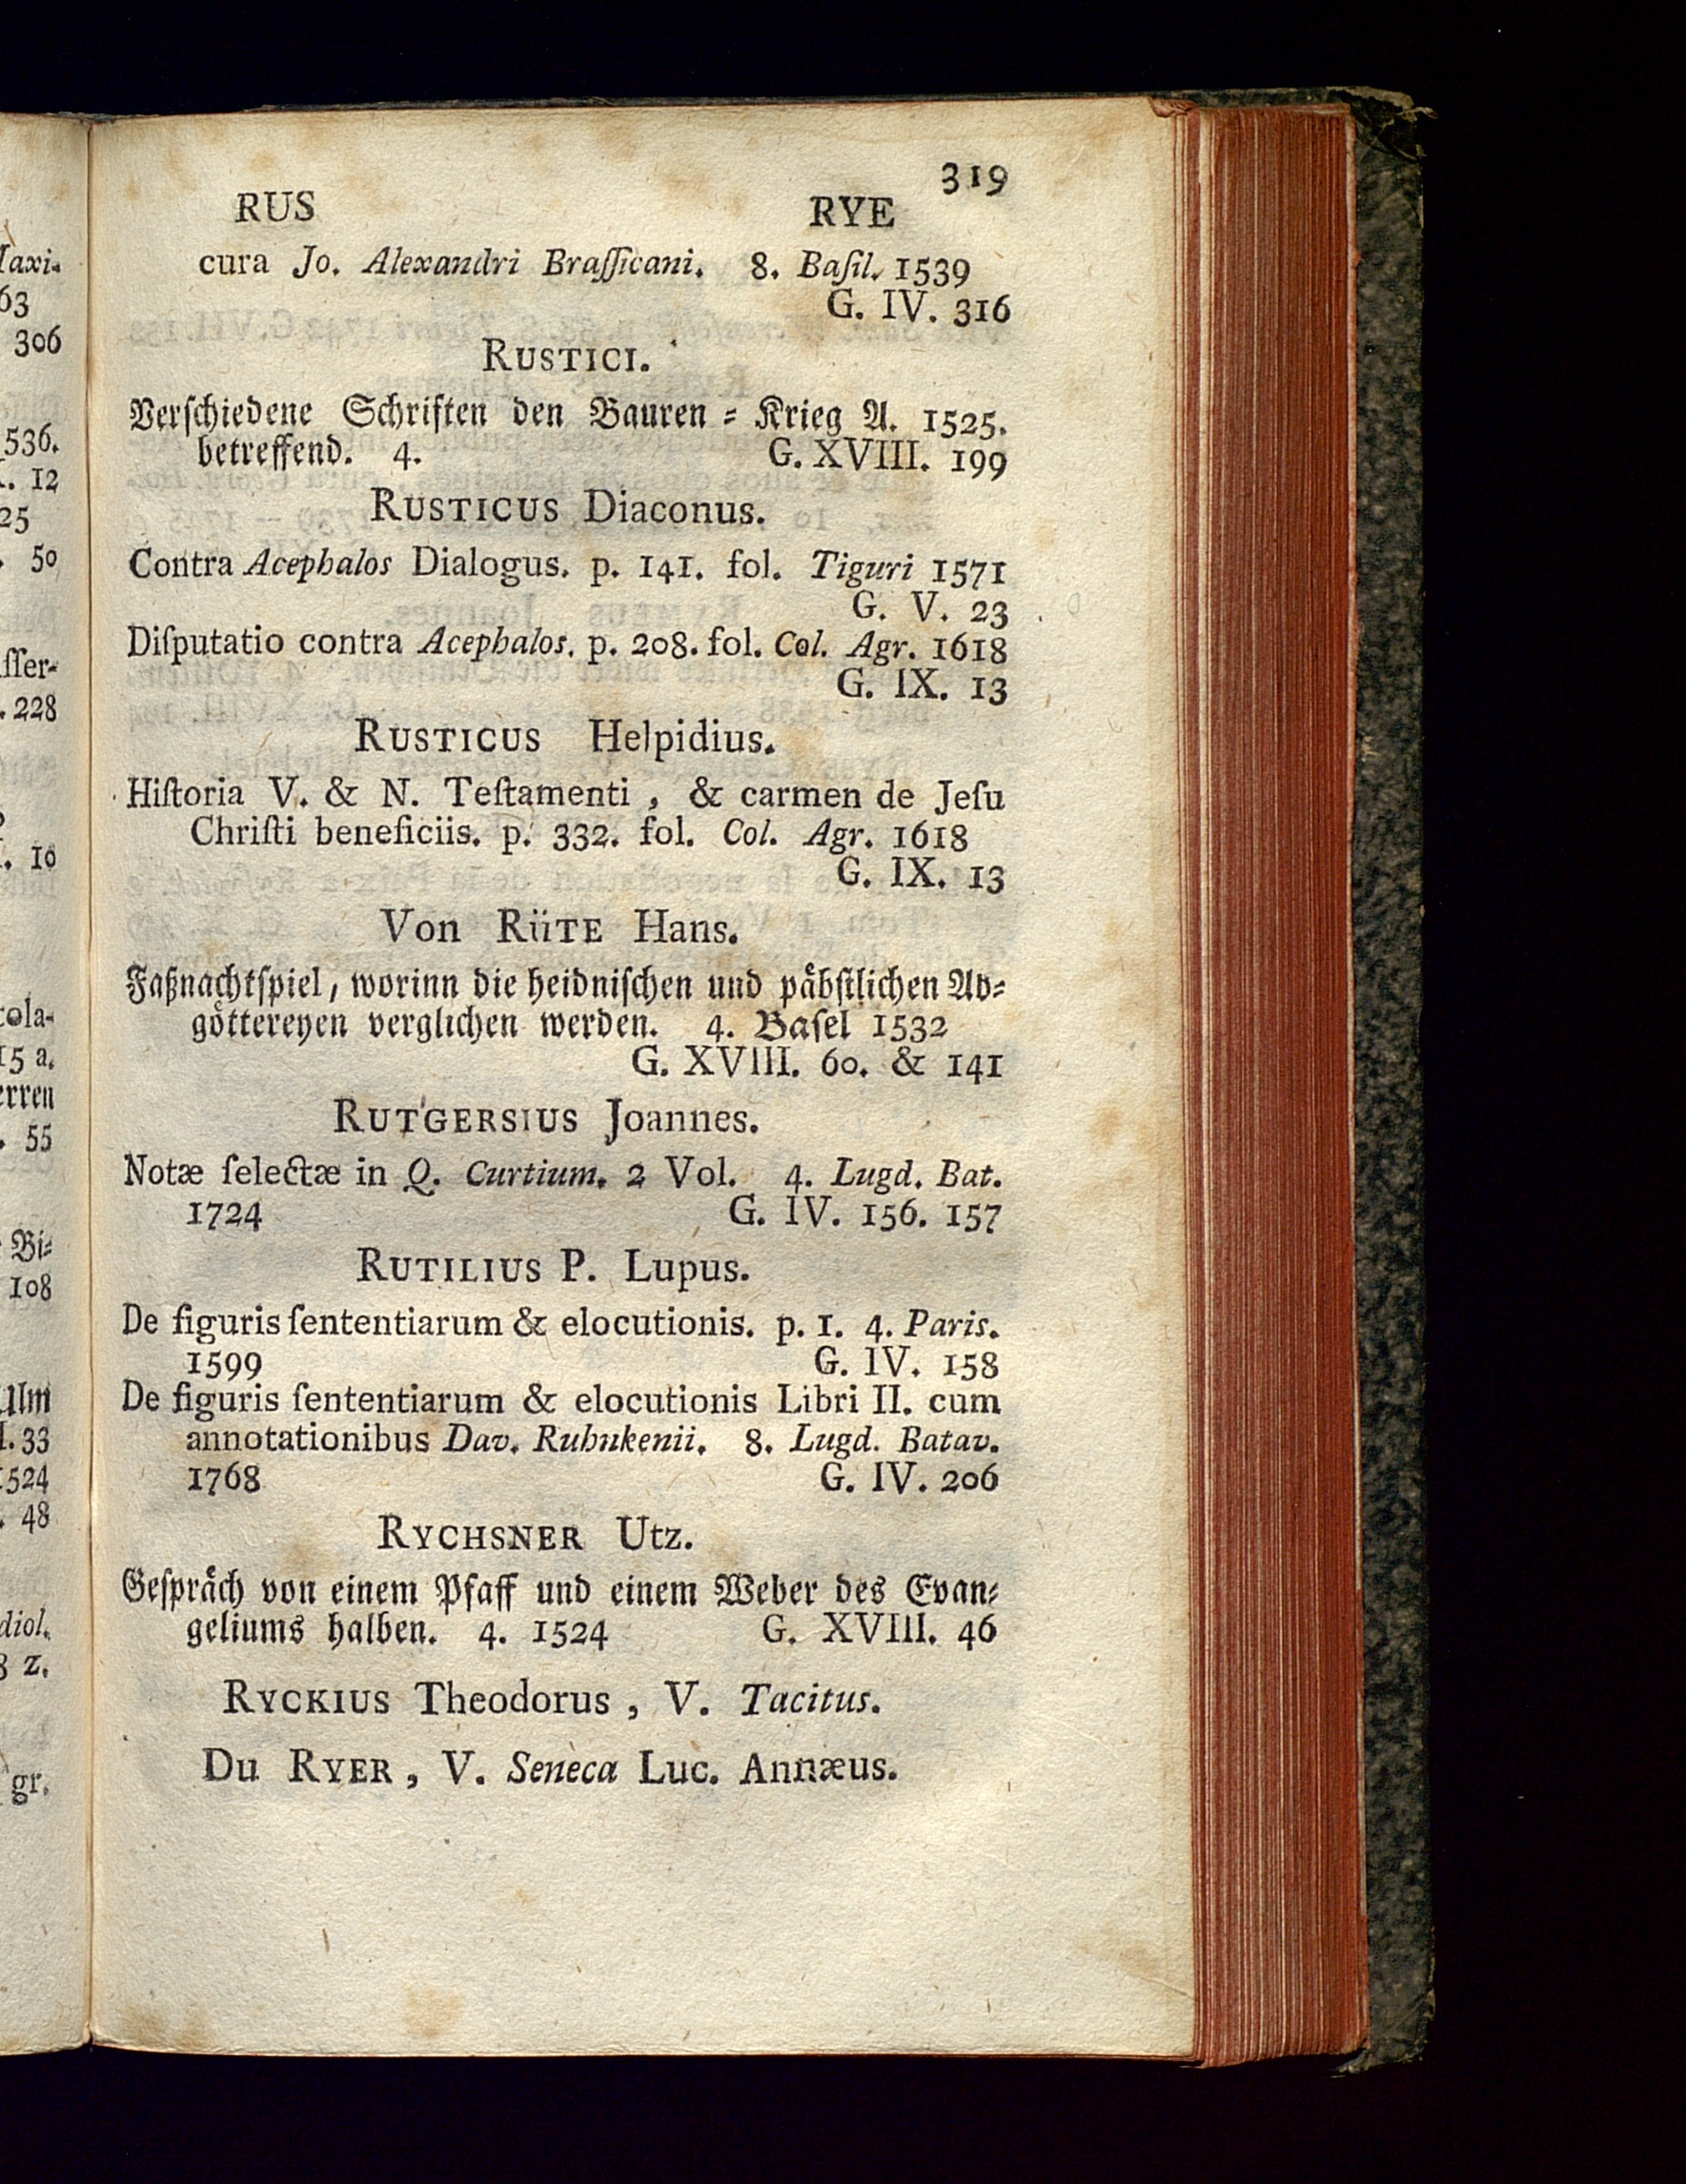 319
RUS RYE
cura Jo. Alexandri Braſſicani. 8. Baſil. 1539
G. IV. 316
RUSTICI.
Verſchiedene Schriften den Bauren = Krieg A. 1525.
betreffend. 4. G. XVIII. 199
RUSTICUS Diaconus.
Contra Acephalos Dialogus. p. 141. fol. Tiguri 1571
G. V. 23
Diſputatio contra Acephalos. p. 208. fol. Col. Agr. 1618
G. IX. 13
RUSTICUS Helpidius.
Hiſtoria V. & N. Teſtamenti, & carmen de Jeſu
Chriſti beneficiis. p. 332. fol. Col. Agr. 1618
G. IX. 13
Von RüTE Hans.
Faßnachtſpiel, worinn die heidniſchen und påbſtlichen Ab=
gӧttereyen verglichen werden. 4. Baſel 1532
G. XVIII. 60. & 141
RUTGERSIUS Joannes.
Notæ ſelectæ in Q. Curtium. 2 Vol. 4. Lugd. Bat.
1724 G. IV. 156. 157
RUTILIUS P. Lupus.
De figuris ſententiarum & elocutionis. p. 1. 4. Paris.
1599 G. IV. 158
De figuris ſententiarum & elocutionis Libri II. cum
annotationibus Dav. Ruhnkenii. 8. Lugd. Batav.
1768 G. IV. 206
RYCHSNER Utz.
Geſpråch von einem Pfaff und einem Weber des Evan=
geliums halben. 4. 1524 G. XVIII. 46
RYCKIUS Theodorus, V. Tacitus.
Du RYER, V. Seneca Luc. Annæus.
306
536.
12
25
50
228
10
15 a.
55
108
33
1524
48
gr.